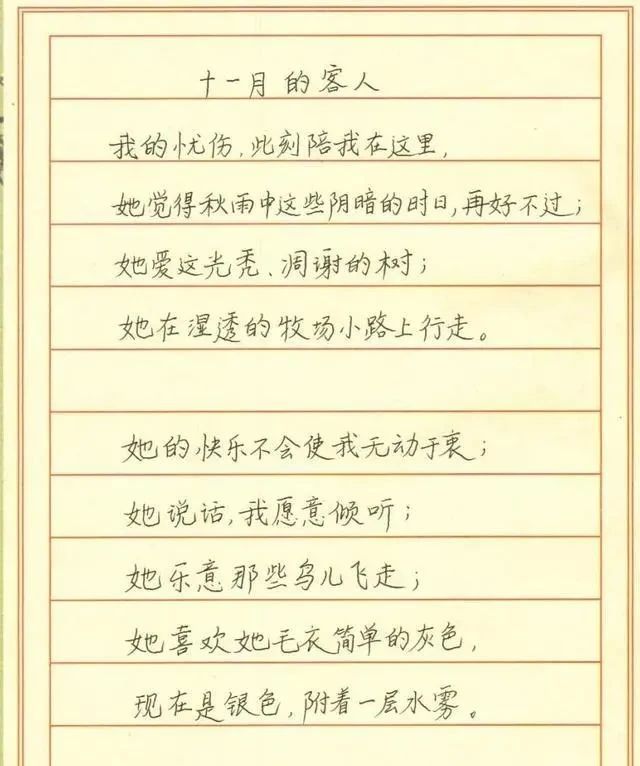 十一月的客人
我的忧伤,此刻陪我在这里,
她觉得秋雨中这些阴暗的时日,再好不过;
她爱这光秃、凋谢的树;
她在湿透的牧场小路上行走。
她的快乐不会使我无动于衷;
她说话,我愿意倾听;
她乐意那些鸟儿飞走;
她喜欢她毛衣简单的灰色,
现在是银色,附着一层水雾。